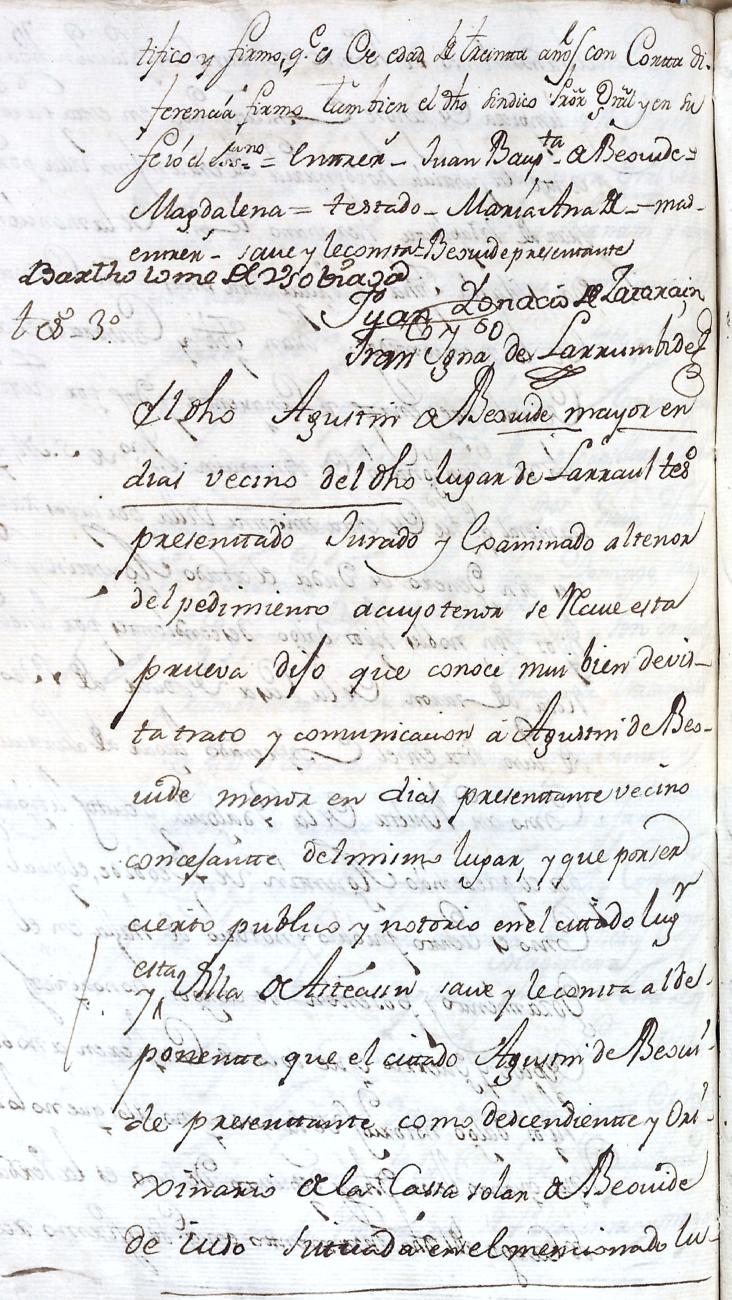 tifico y firmo, q.e es de edad de treinta años con Corta di-
ferencia, firmo tambien el dho sindico Prõr Grãl y en su
feé io el ess.no = Entrerr.s - Juan Bap.ta de Beovide =
Magdalena = testado - Maria Ana de - mas -
entrerr.s - save y le consta = Beovide presentante
Bartholome de Vsobiaga
Juan Ignacio de Zatarain
tes.o 3.o
Ante my
Fran.co Igna.o de Larrumbide
El dho Agustin de Beovide mayor en
dias vecino del dho lugar de Larraul tes.o
presenttado Jurado y Examinado al tenor
del pedimiento a cuyo tenor se Reciue esta
prueva dijo que conoce mui bien de vis-
ta trato y comunicacion á Agustin de Beo-
uide menor en dias presenttante vecino
concejantte del mismo lugar, y que por ser
cierto publico y notorio en el cittado lug.r
y esta Villa de Asteassu save y le consta al de-
ponentte que el cittado Agustin de Beoui-
de presenttante como descendientte y Ori-
xinario de la Cassa solar de Beouide
de iuso situada en el mencionado lu-